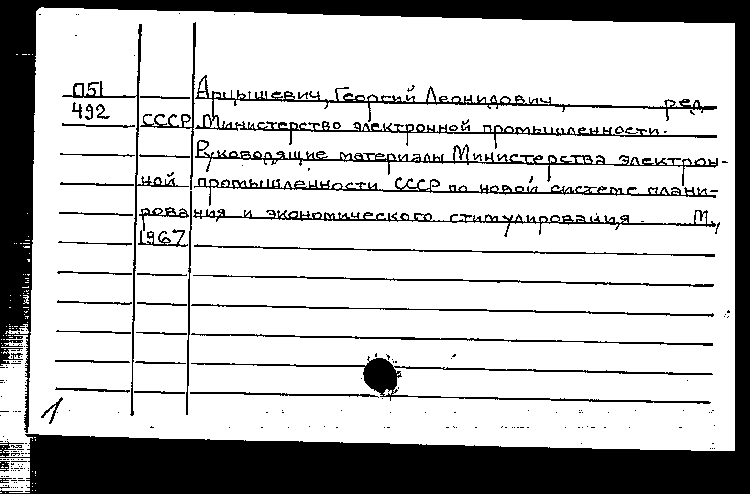 П51 Арцышевич, Георгий Леонидович, ред.
492 СССР Министерство электронной промышленности.
Руководящие материалы Министерства электрон-
ной промышленности СССР по новой системе плани-
рования и экономического стимулирования. М.,
1967
1